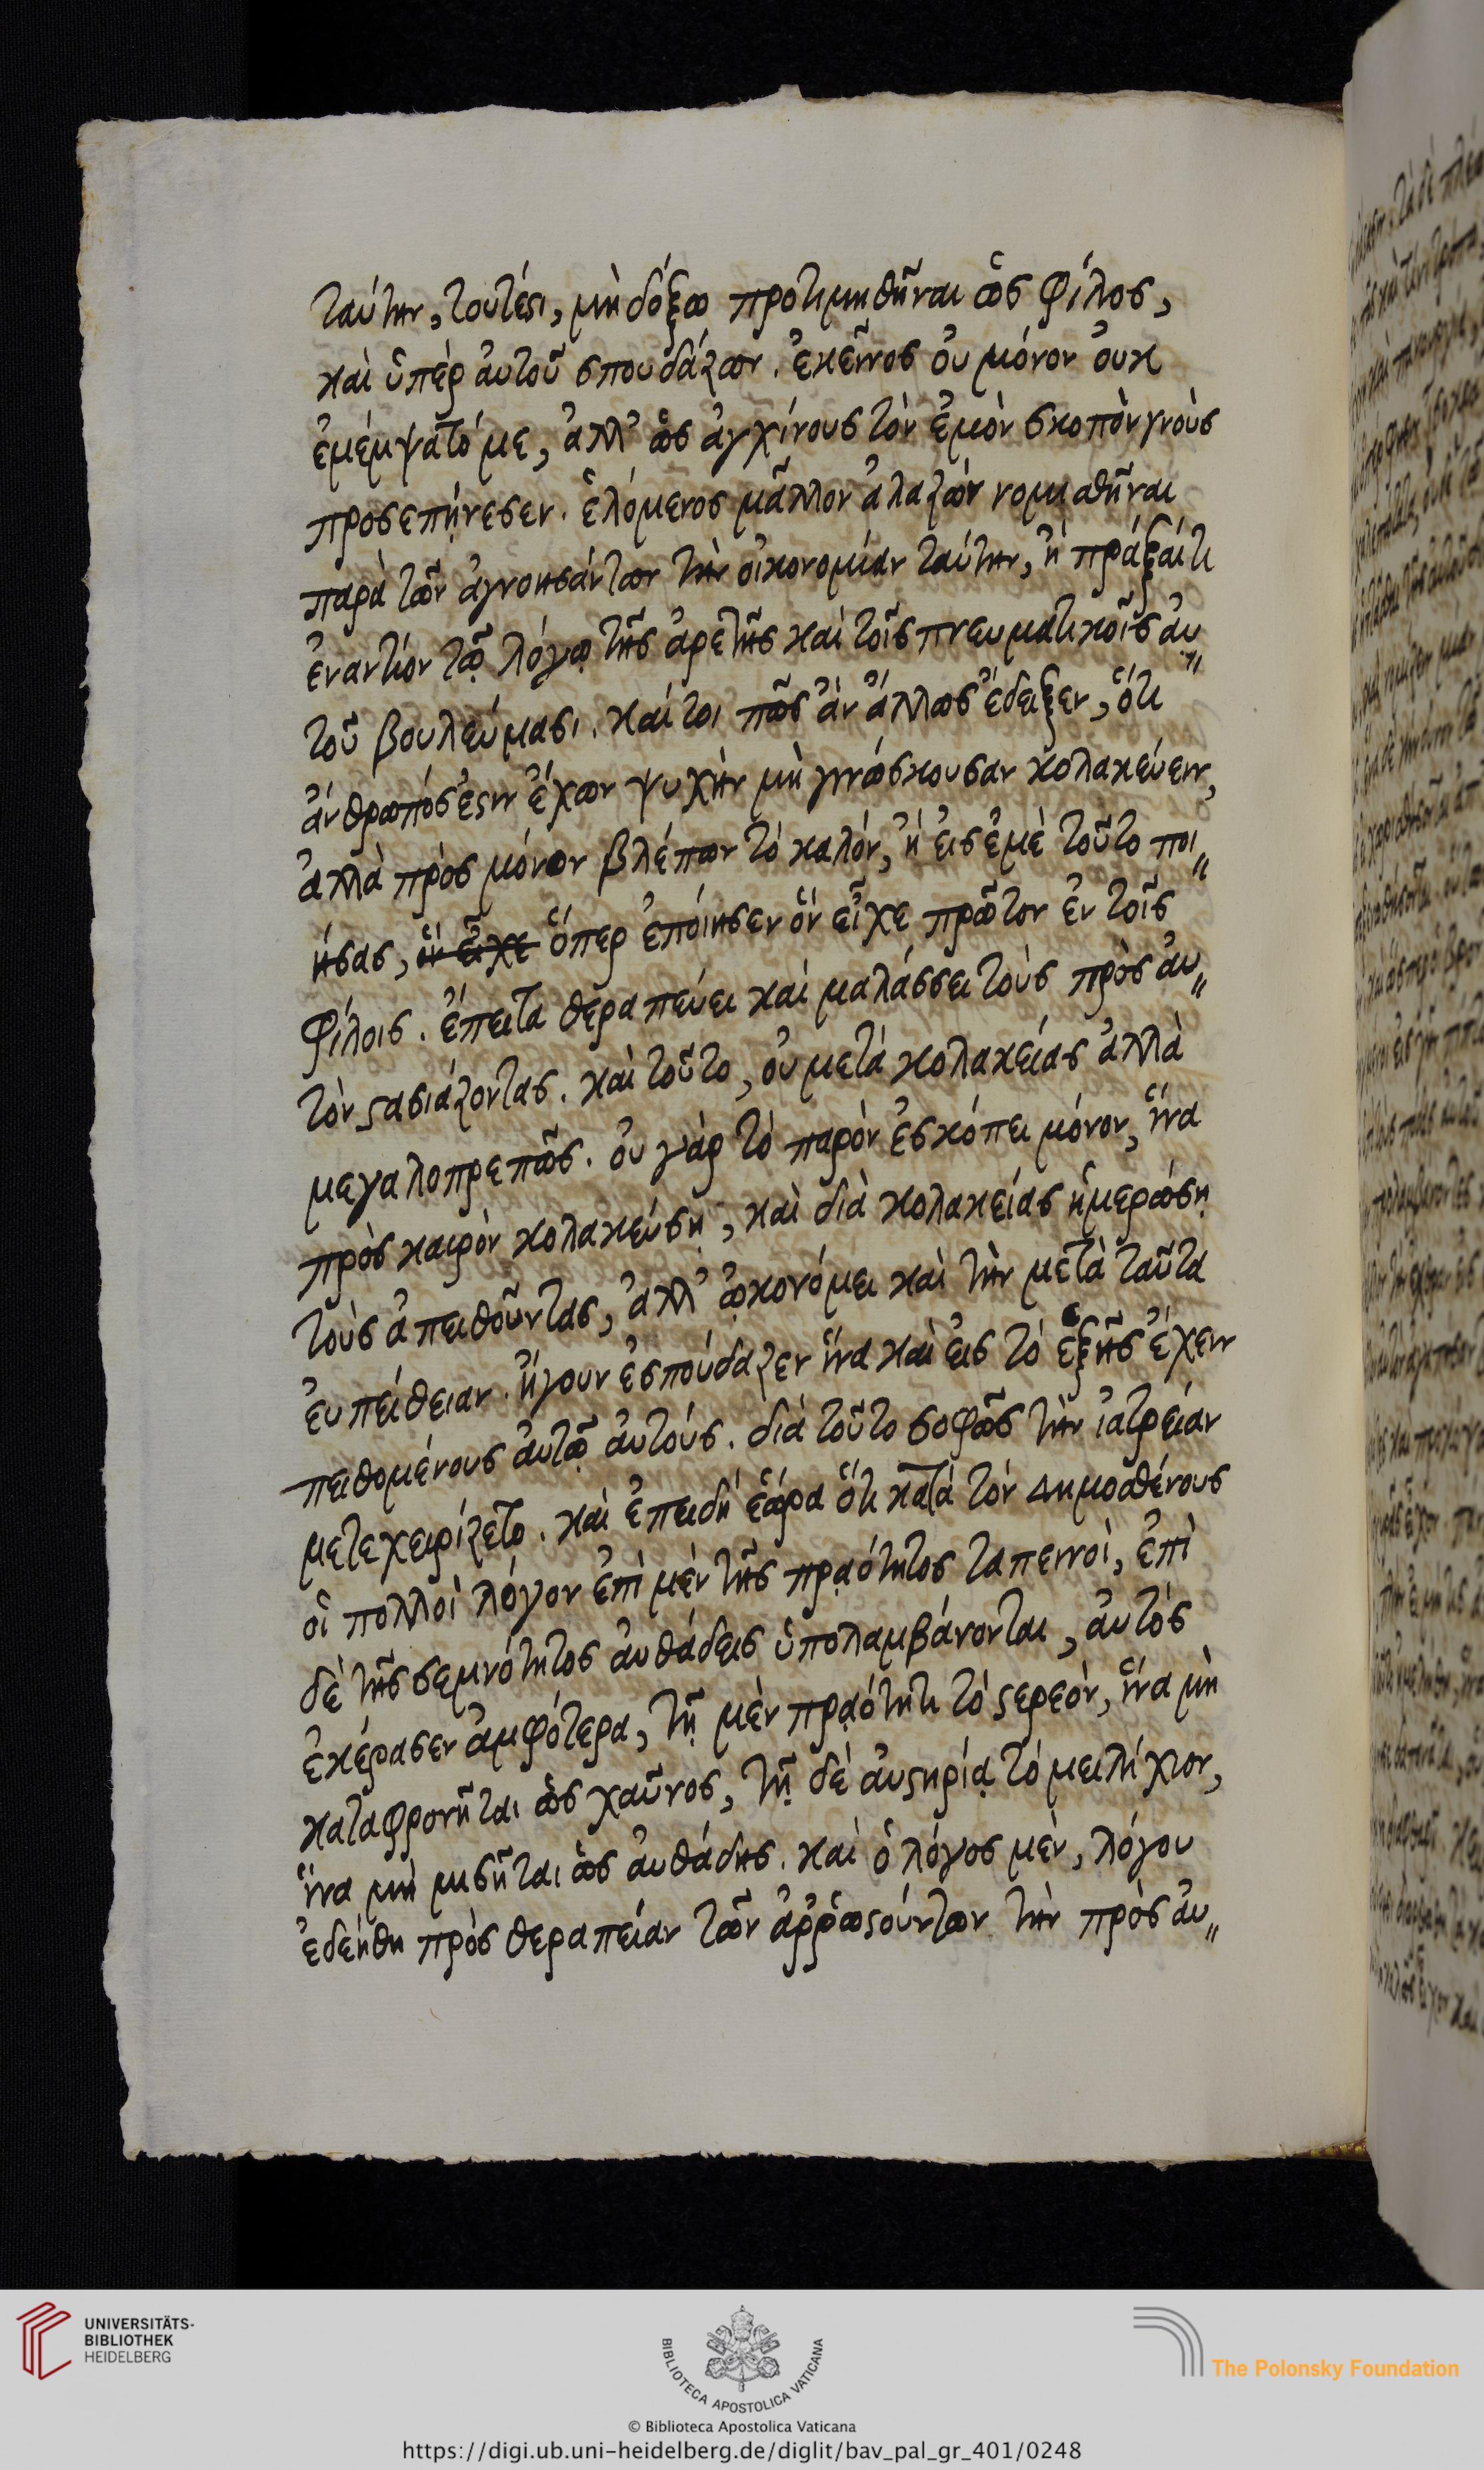 ταύτην, τουτέστι, μὴ δόξω προτιμηθῆναι ὡς φίλος,
καὶ ὑπὲρ αὐτοῦ σπουδάζων. ἐκεῖνος οὐ μόνον οὐκ
ἐμέμψατό με, ἀλλ' ὡς ἀγχίνους τὸν ἐμὸν σκοπὸν γνοὺς
προσεπῄνεσεν. ἑλόμενος μᾶλλον ἀλαζὼν νομισθῆναι
παρὰ τῶν ἀγνοησάντων τὴν οἰκονομίαν ταύτην, ἢ πράξαί τι
ἐναντίον τῷ λόγῳ τῆς ἀρετῆς καὶ τοῖς πνευματικοῖς αὐ„
τοῦ βουλεύμασι. καίτοι πῶς ἂν ἄλλως ἔδειξεν, ὅτι
ἄνθρωπός ἐστιν ἔχων ψυχὴν μὴ γινώσκουσαν κολακεύειν,
ἀλλὰ πρὸς μόνον βλέπων τὸ καλόν, ἢ εἰς ἐμὲ τοῦτο ποι„
ήσας, ὃν εἶχε ὅπερ ἐποίησεν ὃν εἶχε πρῶτον ἐν τοῖς
φίλοις. ἔπειτα θεραπεύει καὶ μαλάσσει τοὺς πρὸς αὐ„
τὸν στασιάζοντας. καὶ τοῦτο, οὐ μετὰ κολακείας ἀλλὰ
μεγαλοπρεπῶς. οὐ γὰρ τὸ παρὸν ἐσκόπει μόνον, ἵνα
πρὸς καιρὸν κολακεύσῃ, καὶ διὰ κολακείας ἡμερώσῃ
τοὺς ἀπειθοῦντας, ἀλλ' ᾠκονόμει καὶ τὴν μετὰ ταῦτα
εὐπείθειαν. ἤγουν ἐσπούδαζεν ἵνα καὶ εἰς τὸ ἑξῆς ἔχειν
πειθομένους αὐτῷ αὐτούς. διὰ τοῦτο σοφῶς τὴν ἰατρείαν
μετεχειρίζετο. καὶ ἐπειδὴ ἑώρα ὅτι κατὰ τὸν Δημοσθένους
οἱ πολλοὶ λόγον ἐπὶ μὲν τῆς πρᾳότητος ταπεινοὶ, ἐπὶ
δὲ τῆς σεμνότητος αὐθάδεις ὑπολαμβάνονται, αὐτὸς
ἐκέρασεν ἀμφότερα, τῇ μὲν πρᾳότητι τὸ στερεὸν, ἵνα μὴ
καταφρονῆται ὡς χαῦνος, τῇ δὲ αὐστηρίᾳ τὸ μειλίχιον,
ἵνα μὴ μισῆται ὡς αὐθάδης. καὶ ὁ λόγος μὲν, λόγου
ἐδεήθη πρὸς θεραπείαν τῶν ἀῤῥωστούντων τὴν πρὸς αὐ„
UNIVERSITÄTS-
BIBLIOTHEK
HEIDELBERG
BIBLIOTECA APOSTOLICA VATICANA
The Polonsky Foundation
© Biblioteca Apostolica Vaticana
https://digi.ub.uni-heidelberg.de/diglit/bav_pal_gr_401/0248